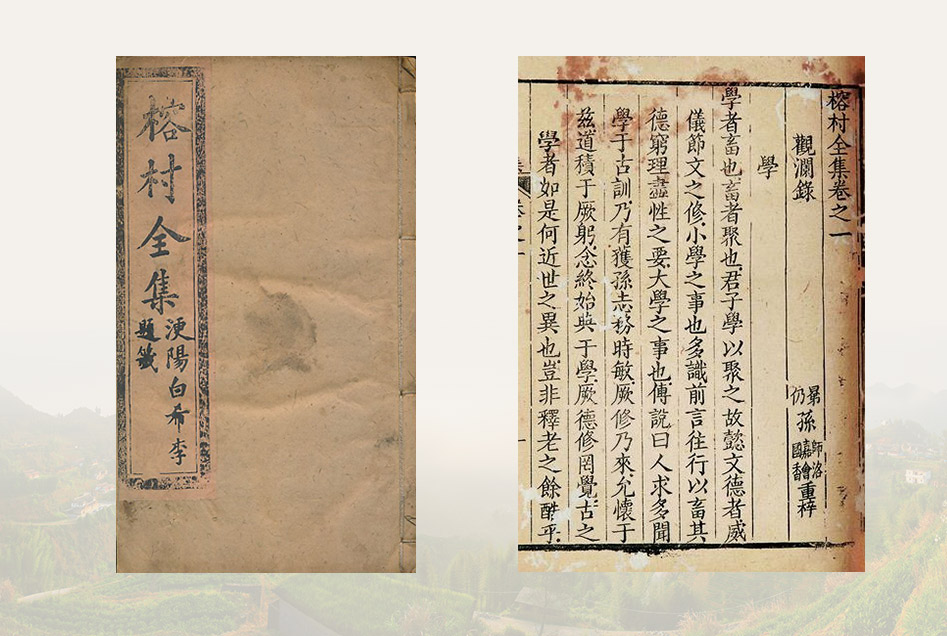 榕村全集
浭陽白希李
題籤
榕村全集卷之一
觀瀾錄
晜仍孫師洛嘉會國香重梓
學
學者畜也畜者聚也君子學以聚之故懿文德者威
儀節文之修小學之事也多識前言往行以畜其
德窮理盡性之要大學之事也傅說曰人求多聞
學于古訓乃有獲孫志務時敏厥修乃來允懷于
茲道積于厥躬念終始典于學厥德修罔覺古之
學者如是何近世之異也豈非釋老之餘乎